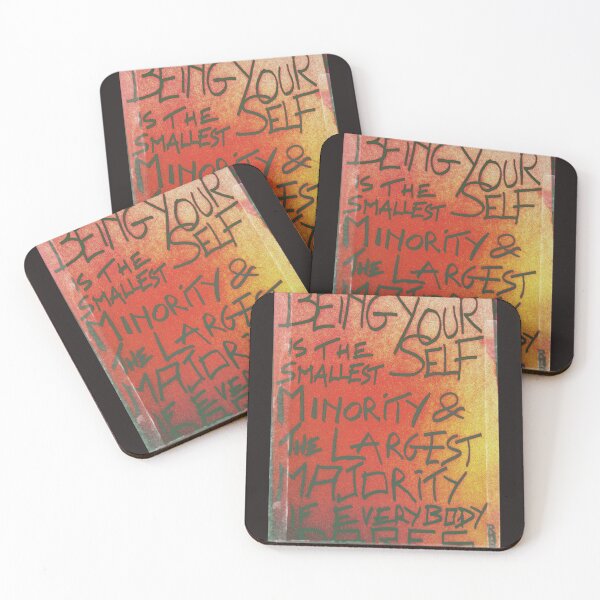 BEING YOUR
SELF
IS THE
SMALLEST
MINORITY &
BEING YOUR
SELF
IS THE
SMALLEST
MINORITY &
THE LARGEST
BEING YOUR
SELF
IS THE
SMALLEST
MINORITY &
THE LARGEST
BEING YOUR
SELF
IS THE
SMALLEST
MINORITY &
THE LARGEST
MAJORITY
IF EVERYBODY